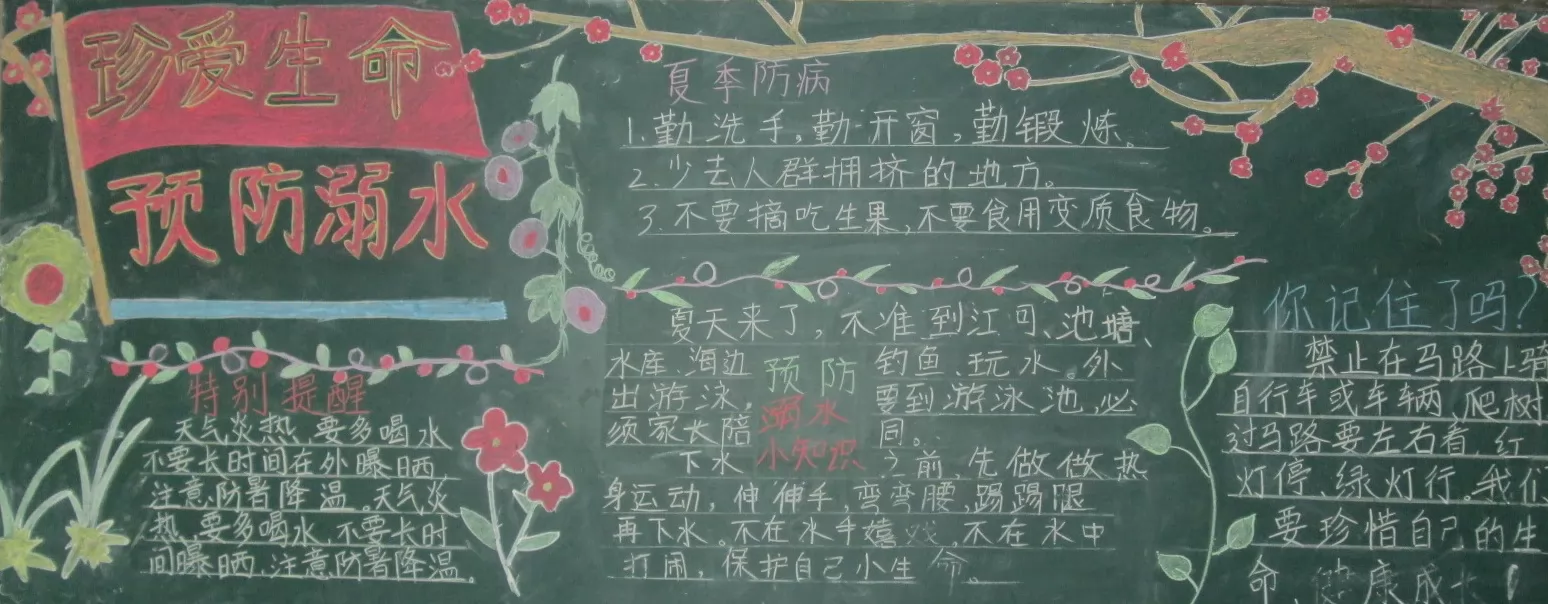 珍爱生命
预防溺水
特别提醒
天气炎热、要多喝水
不要长时间在外曝晒
注意、防暑降温。天气炎
热、要多喝水、不要长时
间曝晒、注意防暑降温。
夏季防病
1.勤洗手。勤开窗，勤锻炼。
2.少去人群拥挤的地方。
3.不要摘吃生果，不要食用变质食物。
夏天来了，不准到江河、池塘、
水库、海边钓鱼、玩水。外
出游泳，要到游泳池，必
须家长陪同。
预防
溺水
小知识
下水之前，先做做热
身运动，伸伸手，弯弯腰，踢踢腿
再下水。不在水手嬉戏。不在水中
打闹，保护自己小生命。
你记住了吗？
禁止在马路上骑
自行车或车辆、爬树
过马路要左右看，红
灯停、绿灯行。我们
要珍惜自己的生
命、健康成长！